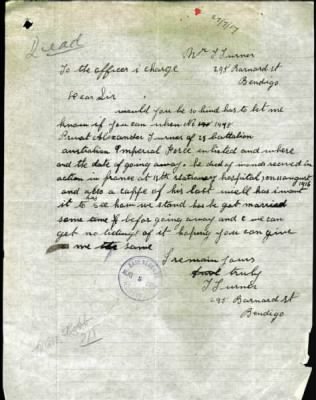 27/7/17
Dead
Mr T Turner
To the officer i charge 295 Barnard St
Bendigo
Dear Sir
would you be so hind has to let me
know if you can when No 1948
Privat Alexander Turner of 23 battalion
australian Imperial Force enlisted and where
and the date of going away. he died of wounds received in
action in france at 13th stationary hospital, 10th august 1916
and also a cappe of his last will has i want
it to see how we stand has he got married
some time befor going away and we can
get no tidings of it hoping you can give
me the same
I remain yours
truly
T Turner
295
Barnard St
Bendigo